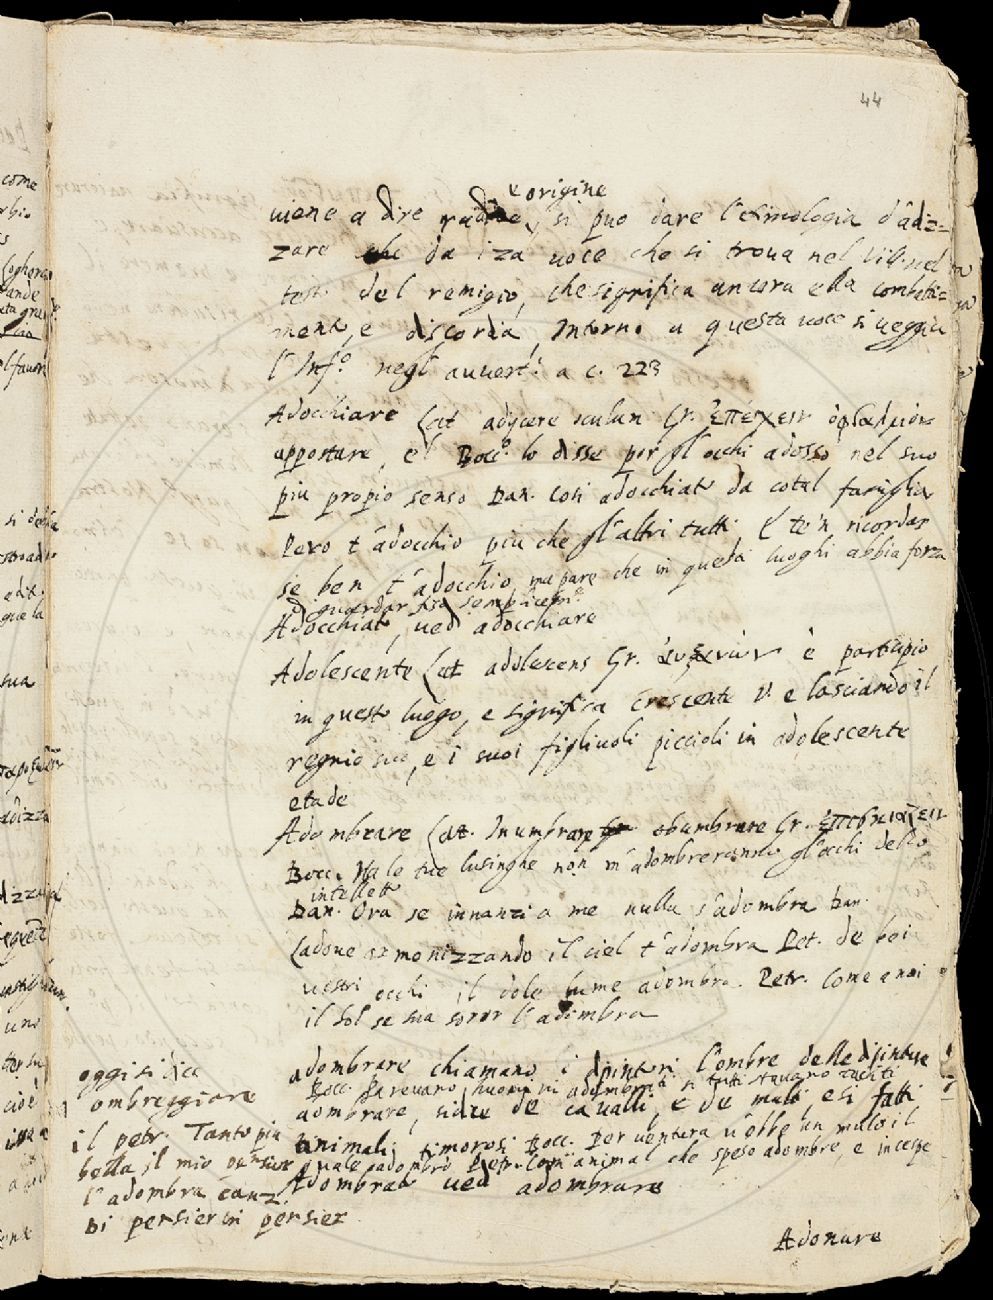 44
e origine
uiene a dire radice, si puo dare l'etimologia d'adiz=
zare da iza uoce che si troua nel
test. del remigio, che significa ancora ella combati=
mento, e discordia, Intorno a questa uoce si ueggia
l'Inf.º negl' auuert.i a c. 223
Adocchiare Lat adijcere oculum Gr. ἐπέχειν ὀφθαλμὸν
appostare, e'l Bocc.º lo disse por gl'occhi adosso nel suo
piu propio senso Dan. Cosi adocchiato da cotal famiglia
Pero t'adocchio piu che gl'altri tutti E te'n ricordar
se ben t'adocchio ma pare che in questi luoghi abbia forza
di guardar fiso semplicem.te
Adocchiato, uedi adocchiare
Adolescente Lat adolescens Gr. è participio
in questo luogo, e significa Crescente V. e lasciando il
regnio suo, e i suoi figliuoli piccioli in adolescente
etade
Adombrare Lat. Inumbrare obumbrare Gr. ἐπισκιάζειν
Bocc. Ma le tue lusinghe non m'adombreranno gl'occhi dello
intelletto
Dan. Ora se innanzi a me nulla s'adombra Dan.
Ladoue armonizzando il ciel t'adombra Pet. de bei
uostri occhi il dolce lume adombra. Petr. Come a noi
il sol se sua soror l'adombra
adombrare chiamano i dipintori l'ombre delle dipinture
Bocc. Pareuano huomini adombrati si tutti stauano cheti
aombrare, si dice de caualli, e de muli e si fatti
animali timorosi Bocc. Per uentura u'ebbe un mulo il
quale adombrò Petr. Com' animal che speso adombre, e incespe
Adombrato uedi adombrare
oggi si dice
ombreggiare
il petr. Tanto piu
bella il mio pensier
l'adombra canz.
Di pensier in pensier
Adonare